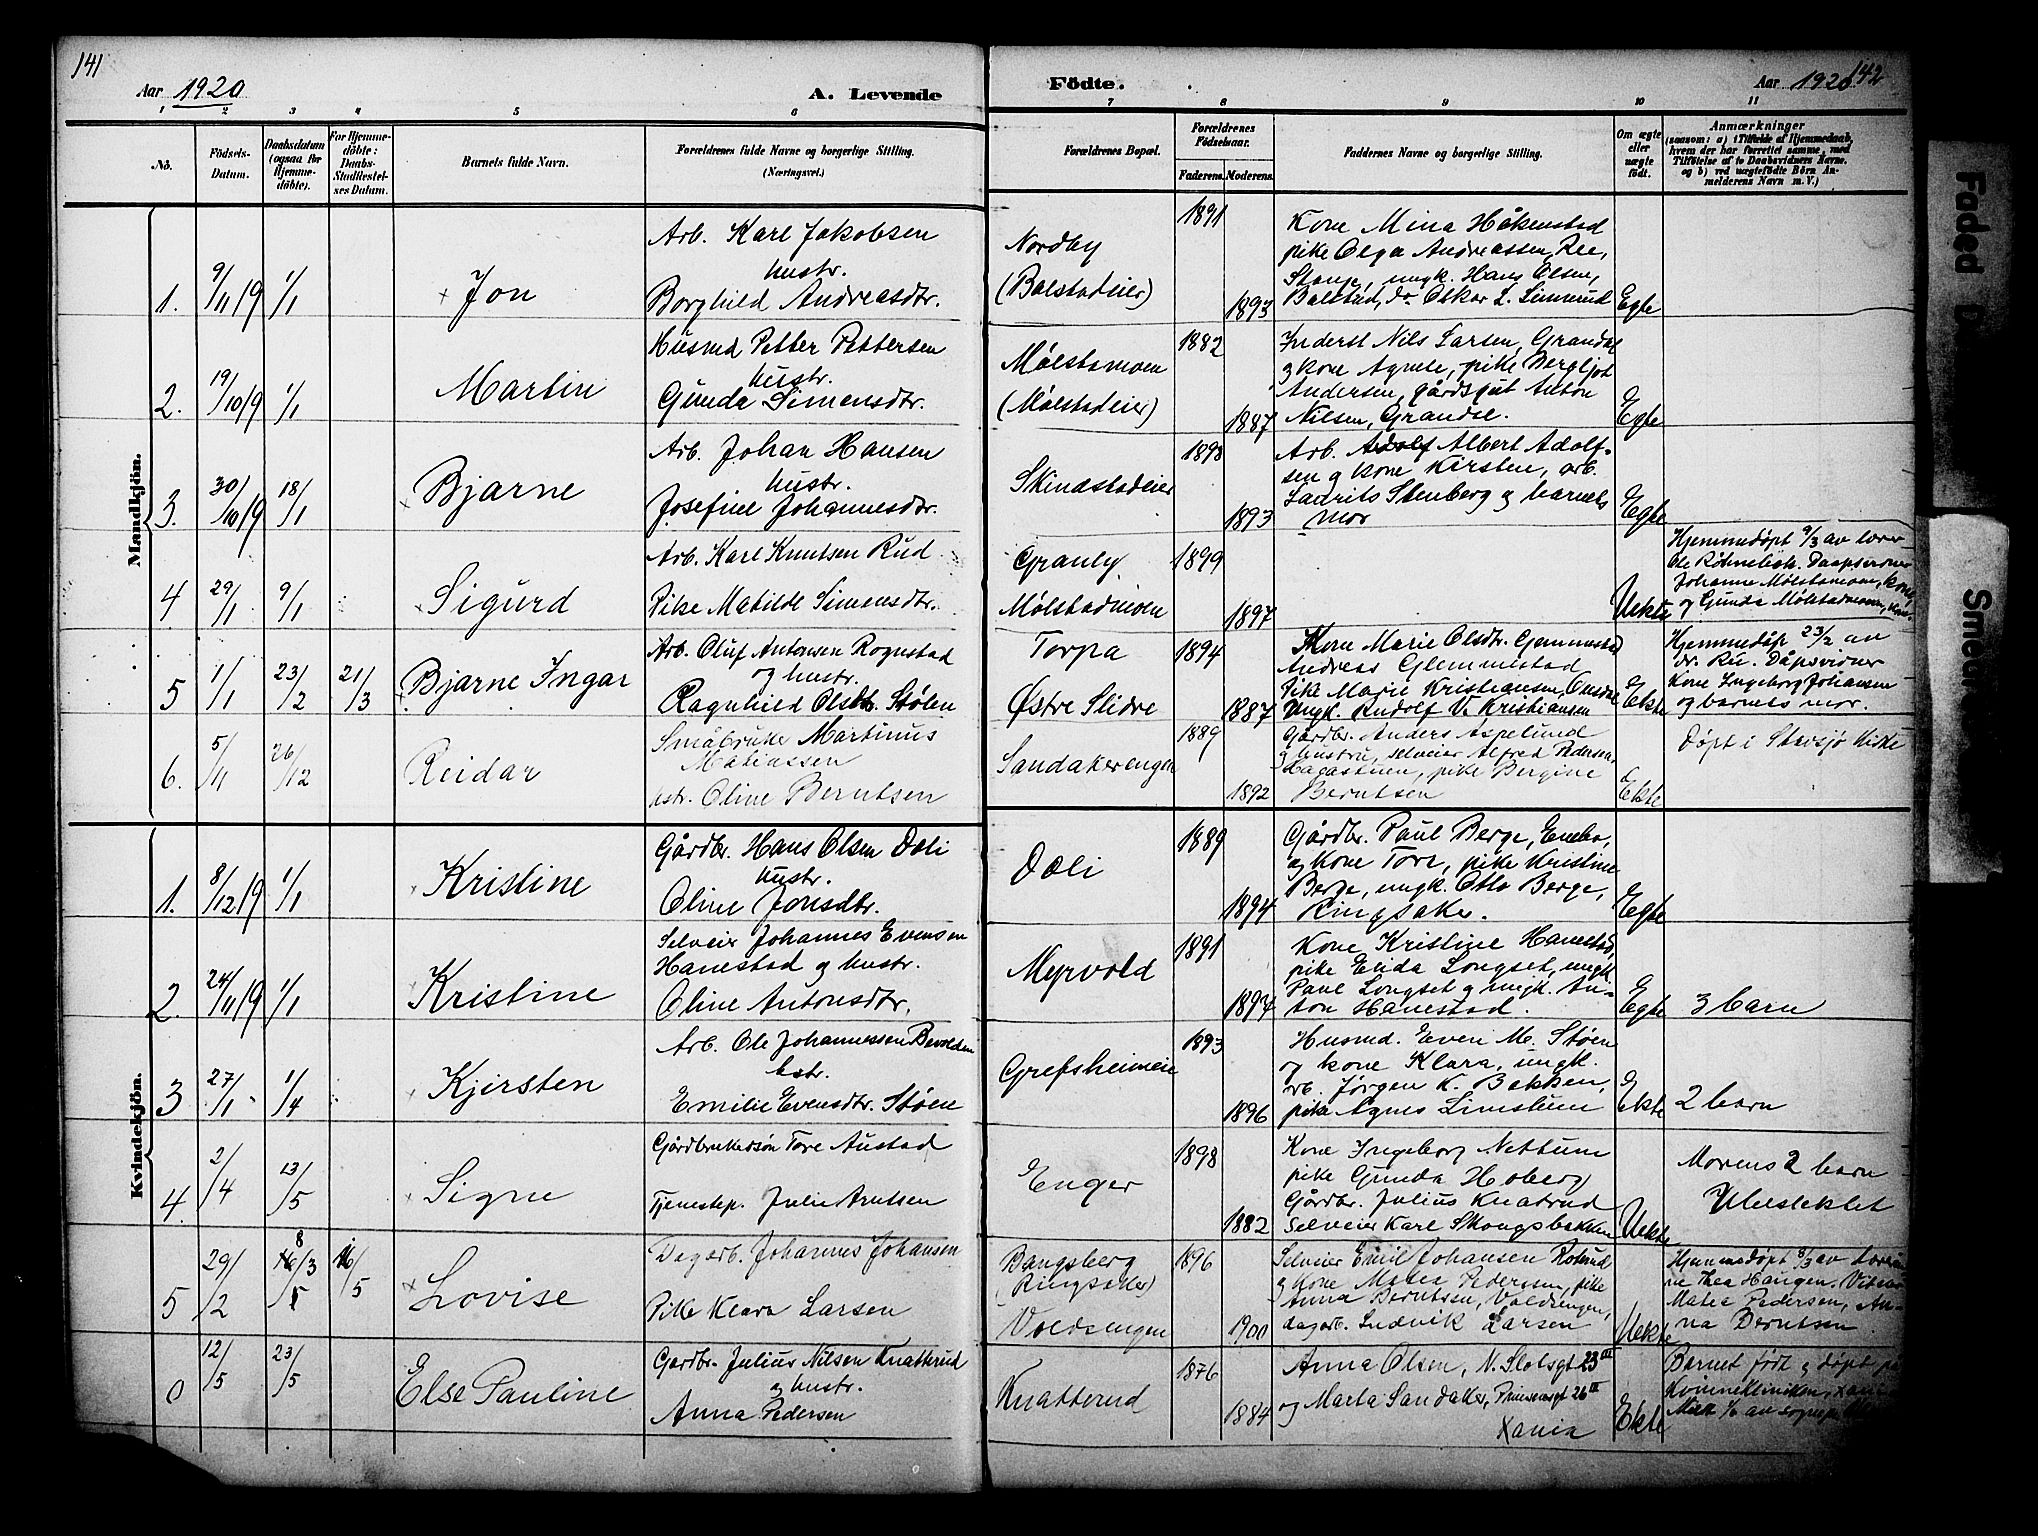 141
Aar 1920
A. Levende
Födte.
Aar 1920
142
1 2 3 4 5 6 7 8 9 10 11
No.
Födsels-
Datum.
Daabsdatum
(ogsaa for
Hjemme-
döbte).
For Hjemme-
döbte:
Daabs-
Stadfæstel-
ses Datum.
Barnets fulde Navn.
Forældrenes fulde Navne og borgerlige Stilling.
(Næringsvei.)
Forældrenes Bopæl.
Forældrenes
Födselsaar.
Faderens. Moderens.
Faddernes Navne og borgerlige Stilling.
Om ægte
eller
uægte
födt.
Anmærkninger
(saasom: a) i Tilfælde af Hjemmedaab,
hvem der har forrettet samme, med
Tilföielse af to Daabsvidners Navne.
og b) ved uægtefödte Börn An-
melderens Navn m. V.)
Mandkjön.
1. 9/11 19 1/1
Jon
Arb. Karl Jakobsen
hustr.
Borghild Andreasdtr.
Nordby
(Balstadeier)
1891
1893
Kone Mina Håkenstad
pike Olga Andreassen, Ree,
Stange, ungk. Hans Olsen,
Balstad, do Oskar L. Linnerud
Egte
2. 19/10 19 1/1
Martin
Husmd Petter Pettersen
hustr.
Gunda Simensdtr.
Mølstamoen
(Mølstadeier)
1882
1887
Inderst Nils Larsen, Grandal
og kone Agnete, pike Bergljot
Andersen, gårdsgut Anton
Nilsen, Grandse.
Egte
3. 30/10 19 18/1
Bjarne
Arb. Johan Hansen
hustr.
Josefine Johannesdtr.
Skindstadeier
1893
Arb. Adolf Albert Adolf-
sen og kone Kirsten, arb.
Laurits Stenberg og barnets
mor
Egte
4 29/1 9/1
Sigurd
Arb. Karl Knutsen Rud
Pike Matilde Simensdtr.
Granly
Mølstadmoen
1899
1897
Uekte
Hjemmedøpt 9/3 av
Johanne Mølstamoen,
og Gunda Mølstadmoen,
5 1/1 23/2 21/3
Bjarne Ingar
Arb. Oluf Antonsen Rognstad
og hustr.
Ragnhild Olsdtr. Stølen
Torpa
Østre Slidre
1894
1887
Kone Marie Olsdtr. Glemmestad
Andreas Glemmestad
Pike Marie Kristiansen,
Ungk. Rudolf V. Kristiansen
Ekte
Hjemmedøp 23/2 av
dr. Ree. Dåpsvidner
Kone Ingeborg Johansen
og barnets mor.
6. 5/11 26/12
Reidar
Småbruker Martinus
Matiassen
hstr. Oline Berntsen
Sandakerengen
1889
1892
Gårdbr. Anders Aspelund
og hustru, selveier Alfred Pedersen
pike Bergine
Berntsen
Ekte
Døpt i Stavsjø Kirke
Kvindekjön.
1. 8/12 19 1/1
Kristine
Gårdbr. Hans Olsen Dæli
hustr.
Oline Jonsdtr.
Dæli
1889
1894
Gårdbr. Paul Berge,
og kone Tore, pike Kristine
Berge, ungk. Otto Berge,
Ringsaker.
Egte
2. 24/11 19 1/1
Kristine
Selveier Johannes Evensen
Hanestad og hustr.
Oline Antonsdtr.
Myrvold
1891
1894
Kone Kristine Hanestad,
pike Elida Longset, ungk
Paul Longset og ungk. An-
ton Hanestad.
Egte
3 barn
3 27/1 1/4
Kjersten
Arb. Ole Johannessen Bevolden
hstr.
Emilie Evensdtr. Støen
Grefsheimeie
1893
1896
Husmd. Even M. Støen
og kone Klara, ungk.
arb. Jørgen K. Bakken,
pike Agnes Limstuen
Ekte
2 barn
4. 2/4 13/5
Signe
Gårdbrukersøn Tore Austad
Tjenestep. Julie Arntsen
Enger
1898
1882
Kone Ingeborg Nettum
pike Gunda Hoberg
Gårdbr. Julius Knatrud
Selveier Karl Skougsbakken
Uekte
Morens 2 barn
Uteslektet
5 29/2 8/3 16/5
Lovise
Dagarb. Johannes Johansen
Pike Klara Larsen
Bangsberg
(Ringsaker)
Voldsengen
1896
1900
Selveier Emil Johansen Roterud
og kone Matea Pedersen, pike
Anna Berntsen, Voldsengen,
dagarb. Ludvik Larsen
Uekte
Hjemmedøpt 8/3 av
Thea Haugen.
Matea Pedersen, An-
na Berntsen
0 12/5 23/5
Else Pauline
Gårdbr. Julius Nilsen Knatterud
og hustr.
Anna Pedersen
Knatterud
1876
1884
Anna Olsen, N. Slotsgt 23 III
og Marta Sandaker, Prinsensgt 26 II
Xania
Ekte
Barnet født og døpt på
Kvinneklinikken,
Faded